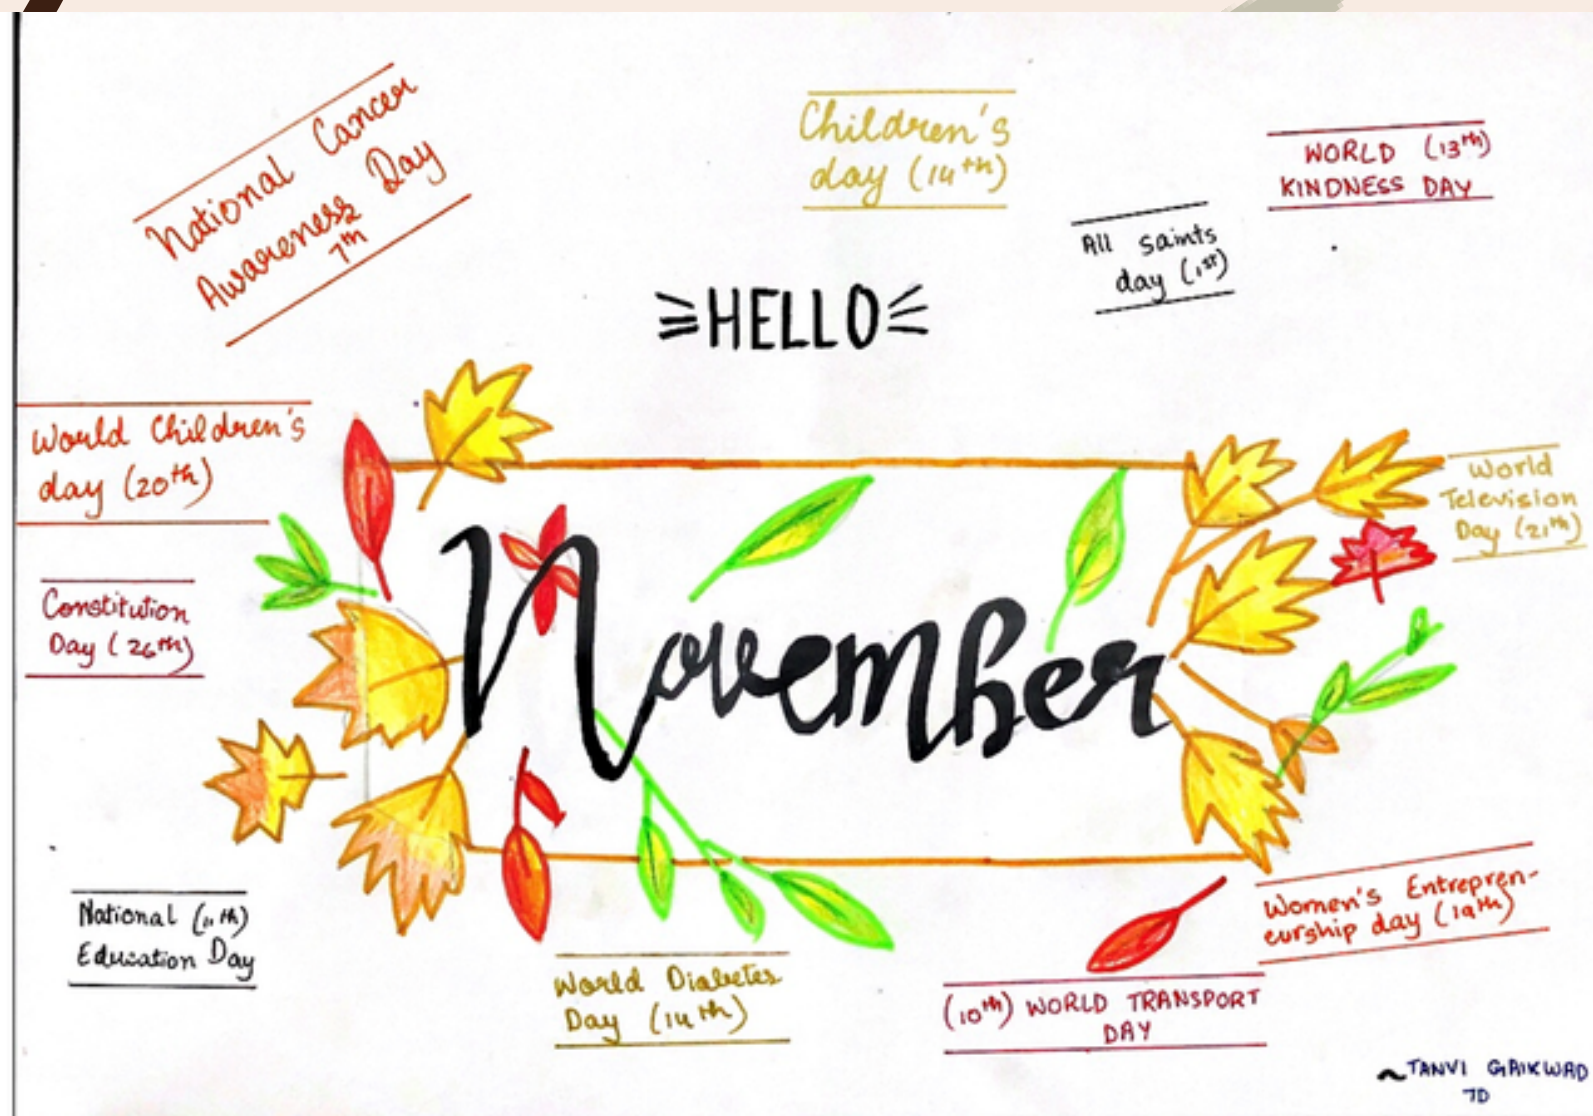 National Cancer
Awareness Day
7th
Children's
day (14th)
WORLD (13th)
KINDNESS DAY
All saints
day (1st)
HELLO
World Children's
day (20th)
World
Television
Day (21th)
Constitution
Day (26th)
November
National (11th)
Education Day
World Diabetes
Day (14th)
(10th) WORLD TRANSPORT
DAY
Women's Entrepren-
eurship day (19th)
~TANVI GAIKWAD
7D